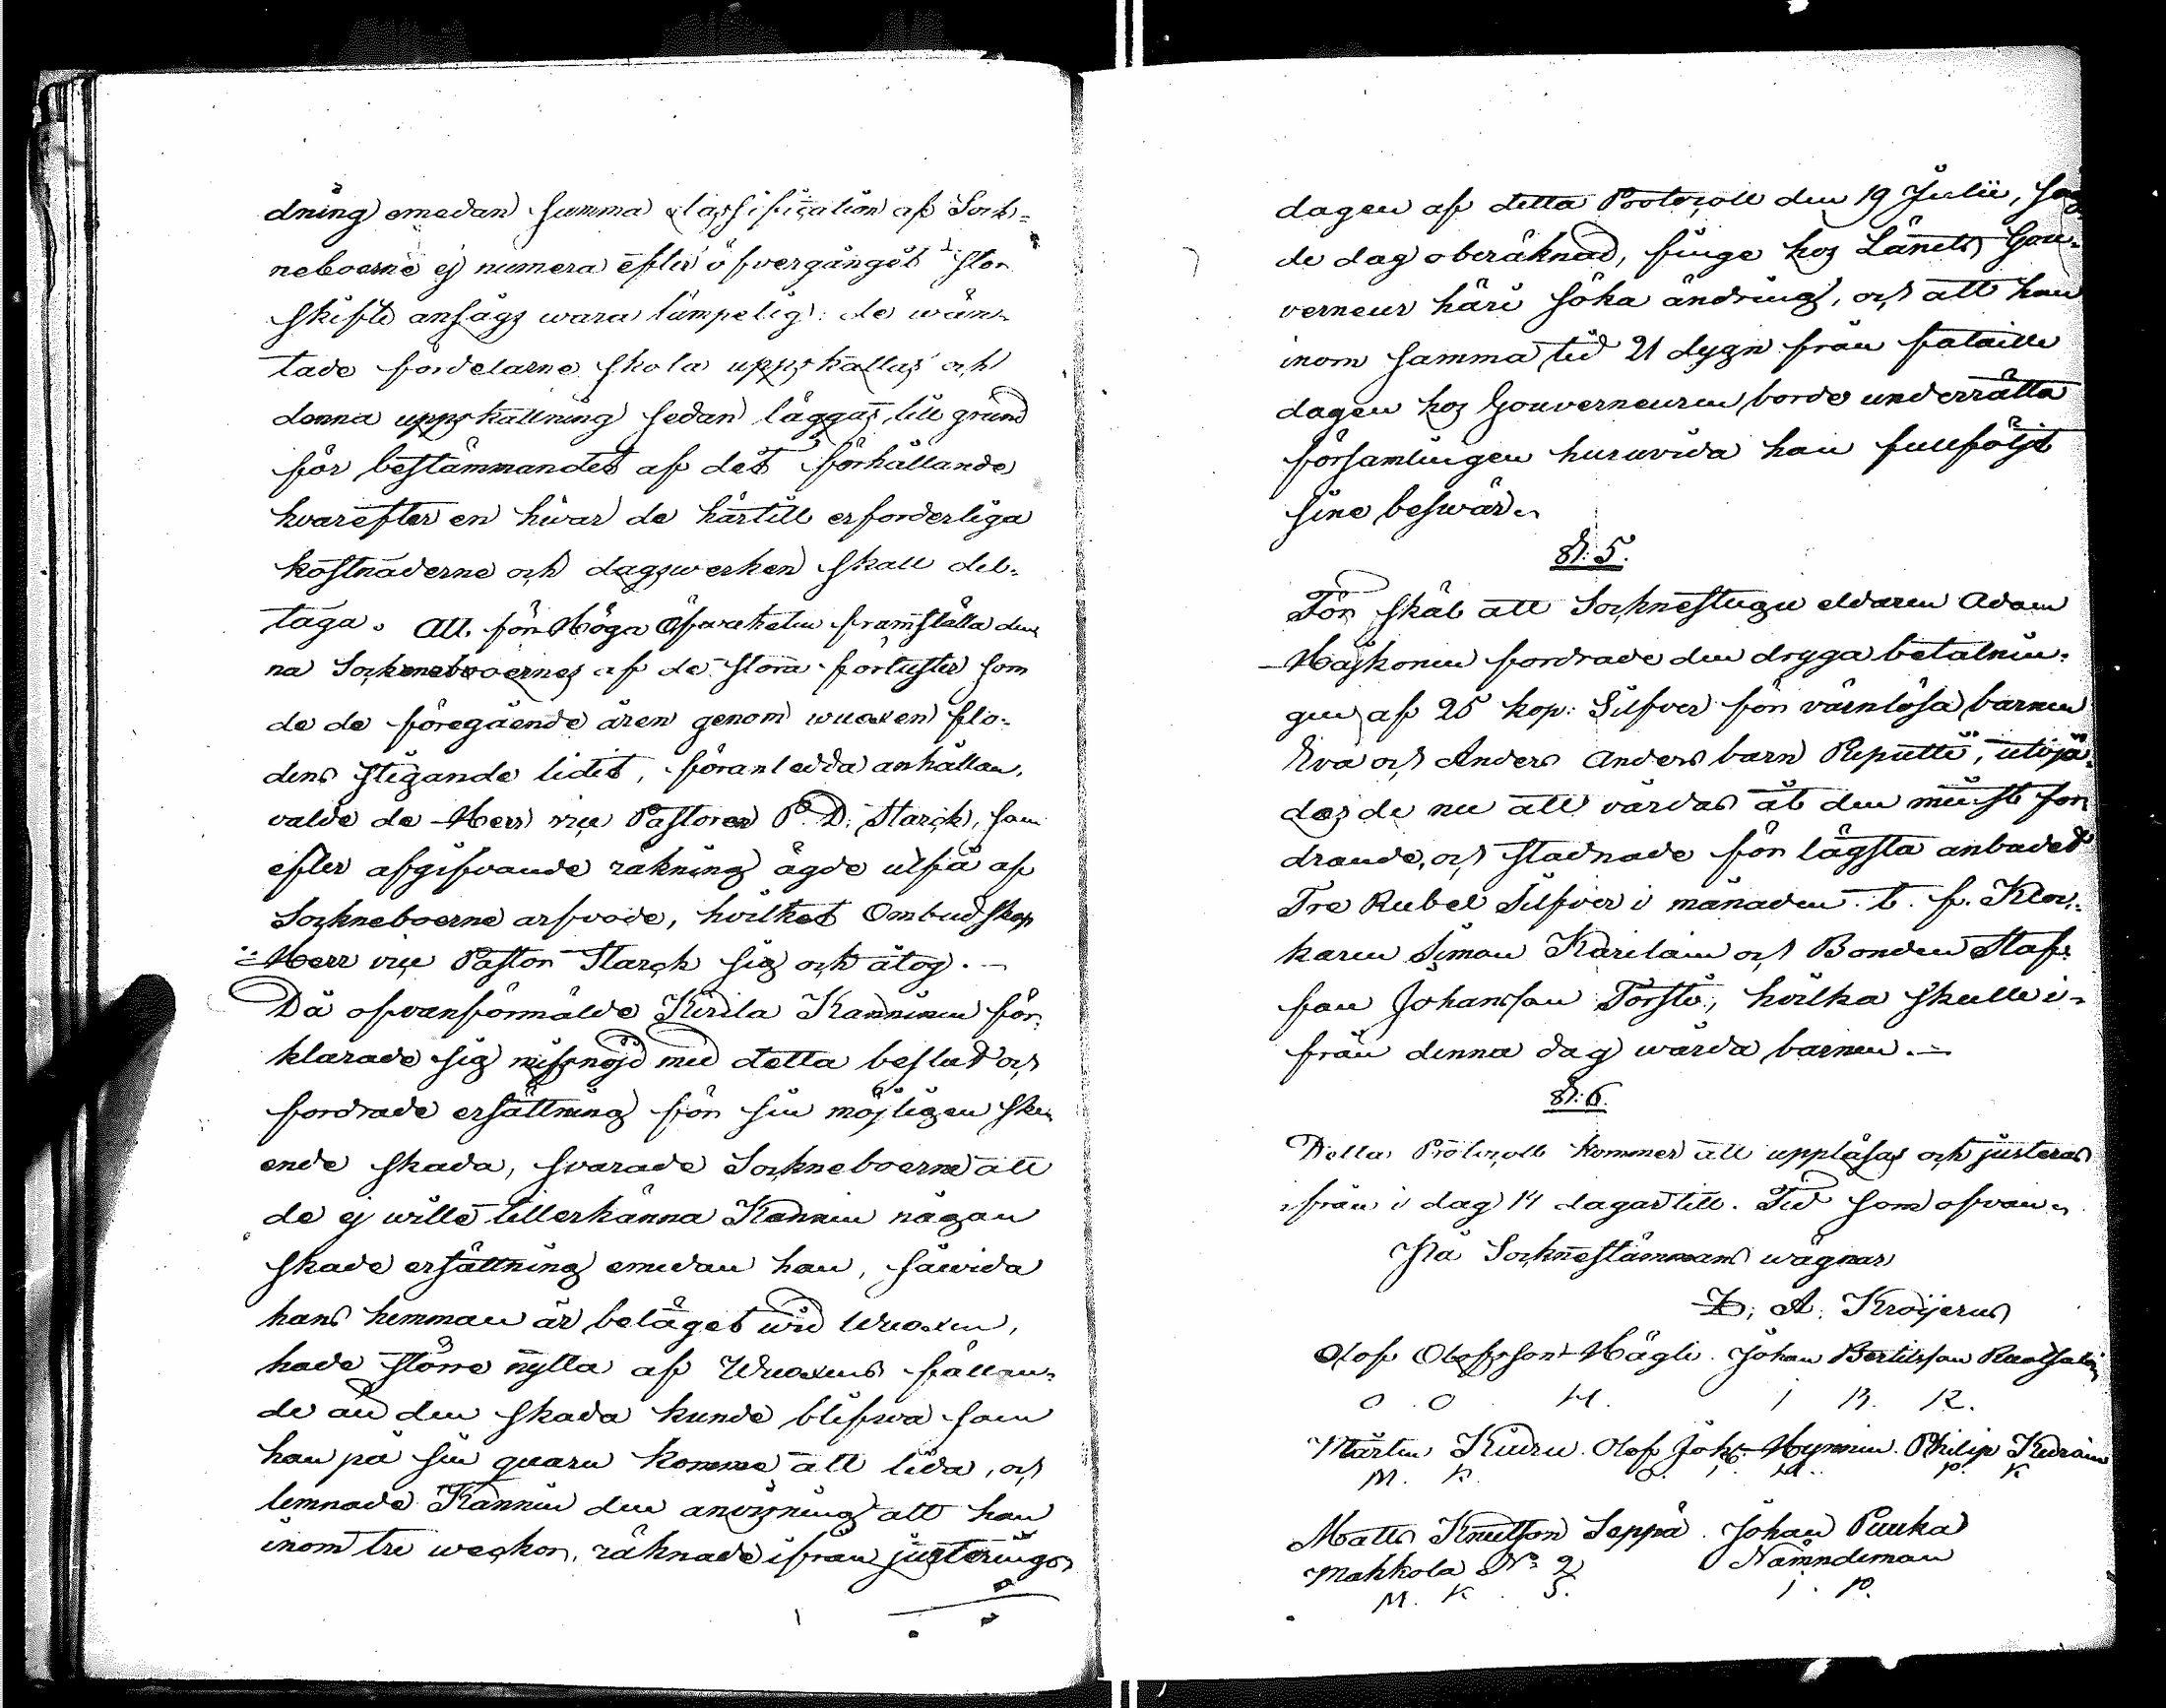 dning emedan summa classification af Sock-
neboerne ej numera efter öfvergånget stor
skifte ansågs wara lämpelig: de wän-
tade fördelarne skola uppskattas och
denna uppskattning sedan läggas till grund
för bestämmandet af det förhållande
hvarefter en hwar de härtill erforderliga
kostnaderne och dagswerken skall del-
taga. Att för Höga Öfverheten framställa den
na Sockneboernes af de stora förluster som
de de föregående åren genom wuoxen flo-
dens stigande lidit, föranledda anhållan,
valde de Herr vice Pastoren P. D. Starck, som
efter afgifvande räkning ägde utfå af
Sockneboerne arfvode, hvilket Ombudskap
Herr vice Pastor Starck sig och åtog.
Då ofvanförmälde Kirila Kanninen för-
klarade sig missnöjd med detta beslut och
fordrade ersättning för sin möjligen ske-
ende skada, svarade Sockneboerne att
de ej wille tillerkänna Kannin någon
skade ersättning emedan han, såwida
hans hemman är beläget wid Wuoxen,
hade större nytta af Wuoxens fallan-
de än den skada kunde blifwa som
han på sin quarn komme att lida, och
lemnade Kannin den anvisning att han
inom tre weckor, räknade ifrån justerings
dagen af detta Protocoll den 19 Julii, sag
de dag oberäknad, finge hos Länets Gou-
verneur häri söka ändring, och att han
inom samma tid 21 dygn från fataille
dagen hos Gouverneuren borde underrätta
församlingen huruvida han fullföljt
sine beswär.
§: 5.
För skäl att Socknestugu eldaren Adam
Häskonen fordrade den dryga betalnin-
gen af 25 kop: Silfver för värnlösa barnen
Eva och Anders Anders barn Reputti, utöja-
des de nu att vårdas åt den minst for
drande, och stadnade för lägsta anbudet
Tre Rubel Silfver i månaden t. f. Kloc-
karen Simon Karilain och Bonden Staf-
fan Johansson Torsti, hvilka skulle i-
från denna dag wårda barnen.
§: 6.
Detta Protocoll kommer att uppläsas och justeras
ifrån i dag 14 dagar till. Tid som ofvan
På Socknestämmans wägnar
D. A. Kroijerus
Olof Olofsson Hägli. Johan Bertilsson Ruotsalain
O. O. H. I. B. R.
Mårten Kiuru. Olof Joh: Hynnin. Philip Kurain
M. K. O. I. H. P. K
Matts Knutsson Seppä. Johan Puuka
Mahkola No 2 Nämndeman
M. K. S. I. P.